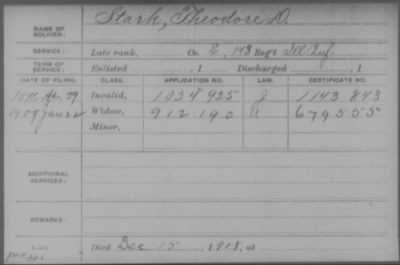 NAME OF SOLDIER: Stark, Theodore D.
SERVICE: Late rank, Co. E, 143 Reg't Ill. Inf.
TERM OF SERVICE: Enlisted , 1 Discharged , 1
DATE OF FILING. CLASS. APPLICATION NO. LAW. CERTIFICATE NO.
Invalid, 1024 925 J 1143 843
1909 Jan 22 Widow, 912 190 679555
Minor,
ADDITIONAL SERVICES:
REMARKS:
Died Dec 15, 1908, at